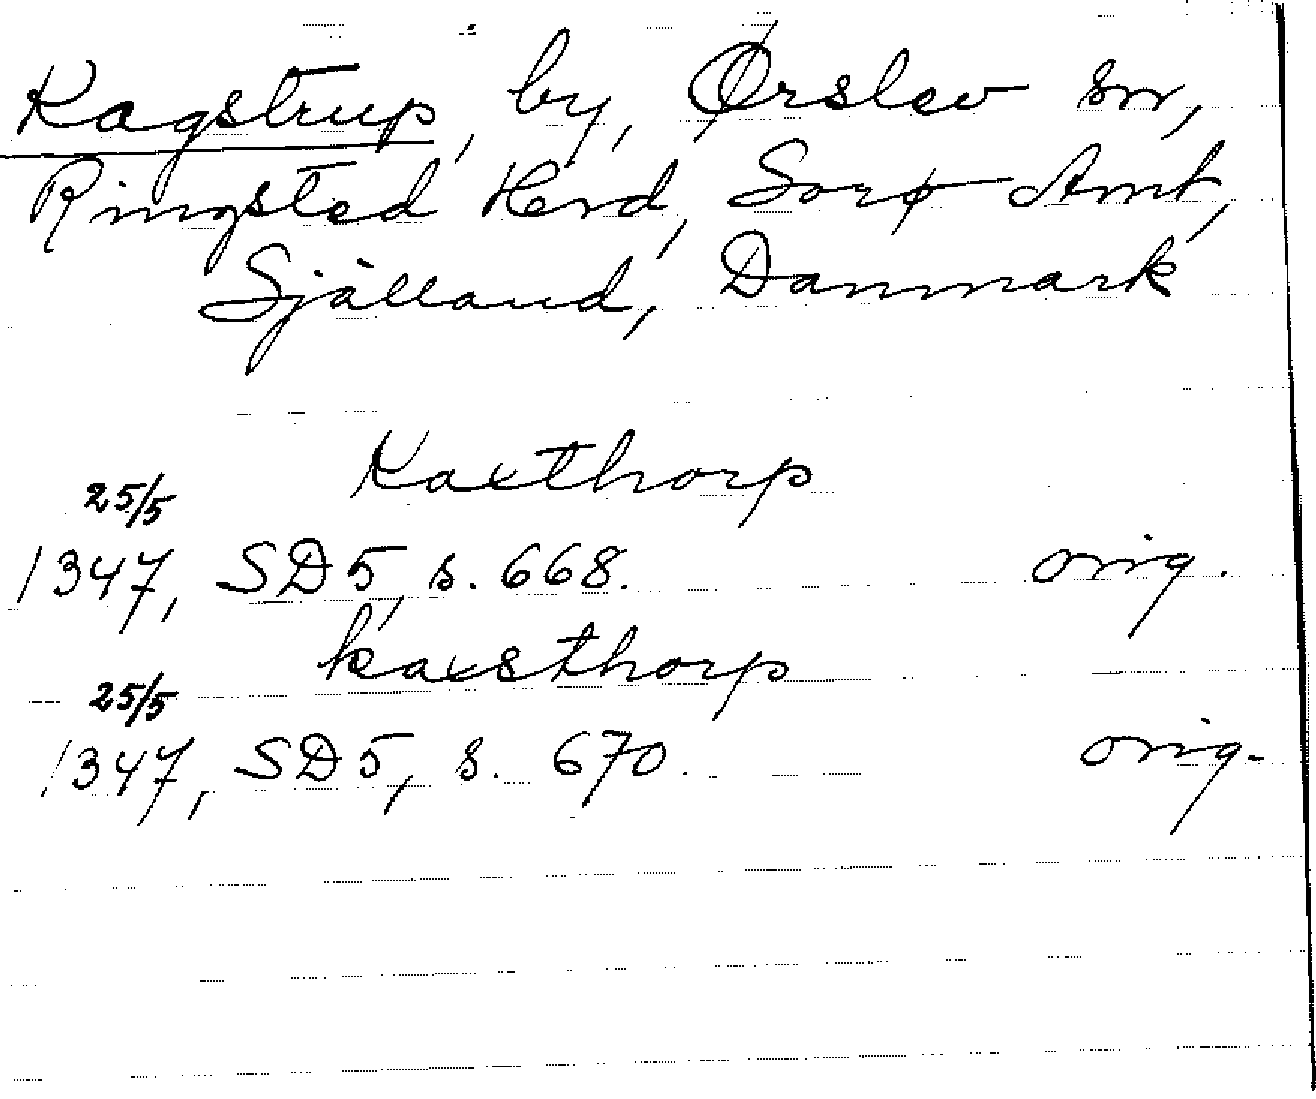 Kagstrup, by, Ørslev sn,
Ringsted Herd, Sorø Amt,
Sjálland, Danmark
Kaxthorp
25/5
1347, SD5, s. 668. orig.
kaxsthorp
25/5
1347, SD5, s. 670. orig.